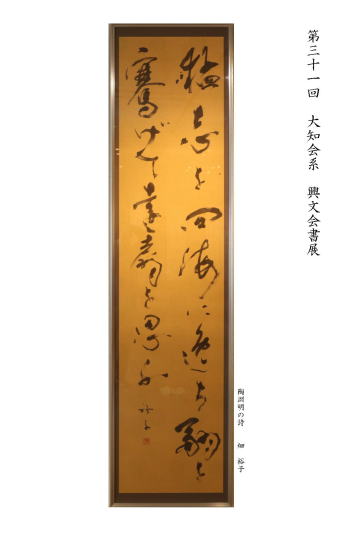 第三十一回　大知会系　興文会書展
猛志を四海に逸ち翮を
騫げて遠翥を思ふ
裕子
陶淵明の詩　畑　裕子